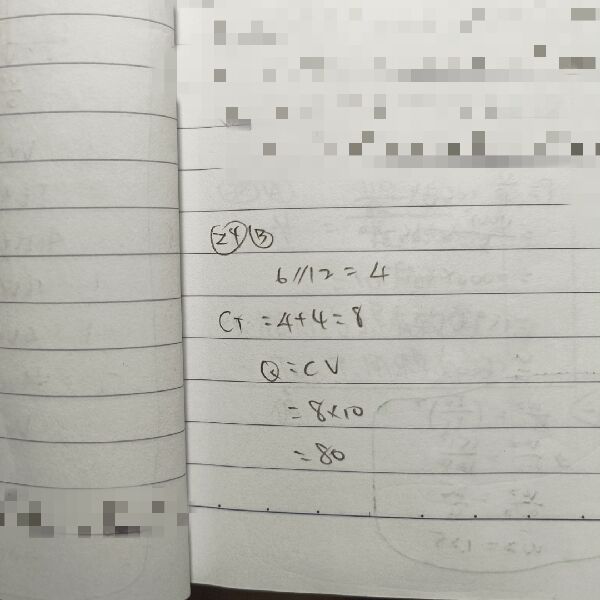 24 B
6//12 = 4
CT = 4+4 = 8
Q = CV
= 8×10
= 80